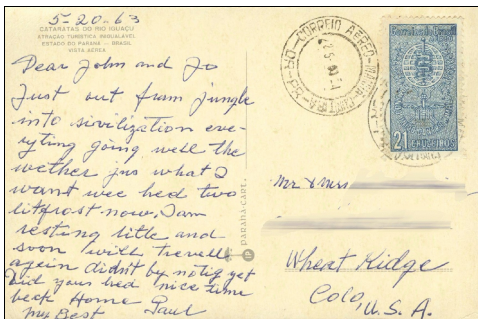 5-20-63
CATARATAS DO RIO IGUAÇU
ATRAÇÃO TURISTICA INIGUALÁVEL
ESTADO DO PARANÁ - BRASIL
VISTA AEREA
Dear John and Jo
Just out from jungle
into sivilization eve-
ryting going well the
wether jus what I
want wee hed two
litfrost now, I am
resting little and
soon will travell
again didn't by notig yet
Did your hed nice time
back Home Paul
My Best
PARANÁ-CART.
CORREIO AEREO
Correios do Brasil
21 CRUZEIROS
Mr & Mrs
Wheat Ridge
Colo, U.S.A.